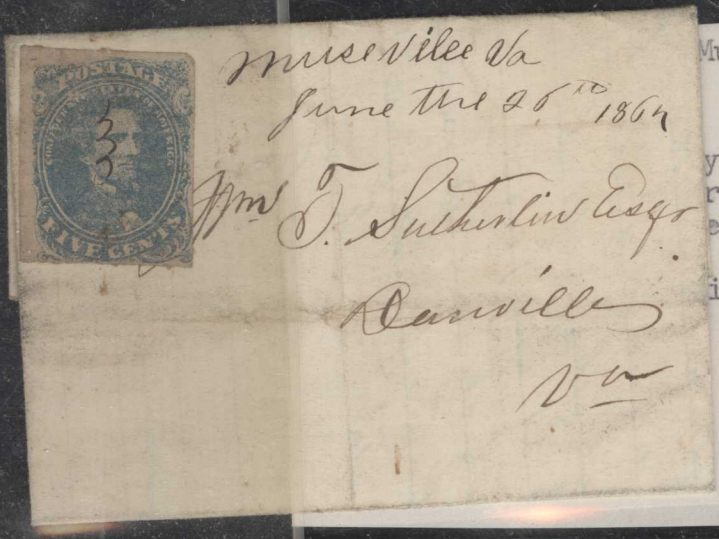 POSTAGE
CONFEDERATE STATES OF AMERICA
FIVE CENTS
Museville Va
June the 26th 1862
Wm T. Sutherlin Esqr
Danville
Va